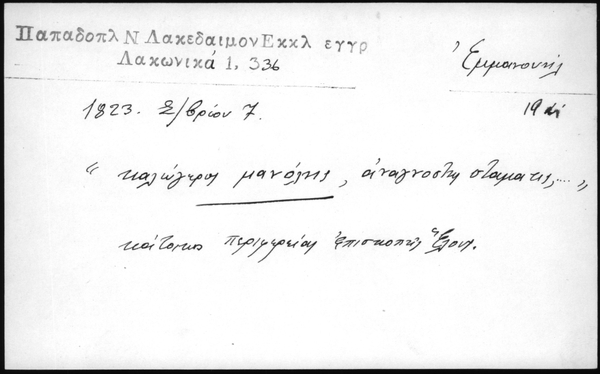 Παπαδοπλ Ν Λακεδαιμον Εκκλ εγγρ
Λακωνικά 1, 336
Ἐμμανουήλ
1823. Σ/βρίου 7.
19
“ καλόγερος μανόλης, ἀναγνοστης σταματις, .... ”
κάτοικος περιφερείας ἐπισκοπῆς Ἕλους.